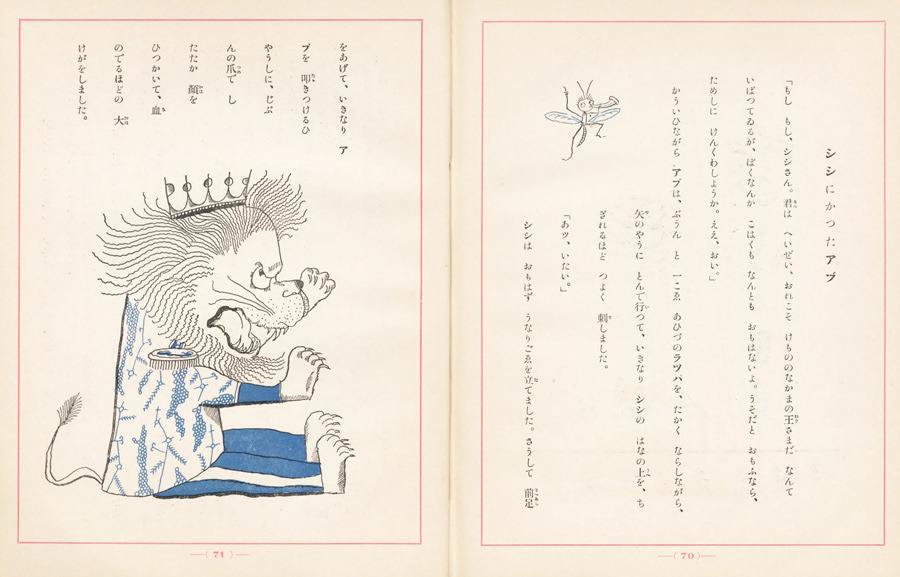 シシにかつたアブ
「もし もし、シシさん。君は へいぜい、おれこそ けもののなかまの王さまだ なんて
いばつてゐるが、ぼくなんか こはくも なんとも おもはないよ。うそだと おもふなら、
ためしに けんくわしようか。ええ、おい。」
かういひながら アブは、ぶうん と 一こゑ あひづのラツパを、たかく ならしながら、
矢のやうに とんで行つて、いきなり シシの はなの上を、ち
ぎれるほど つよく 刺しました。
「あツ、いたい。」
シシは おもはず うなりごゑを立てました。さうして 前足
—( 70 )—
をあげて、いきなり ア
ブを 叩きつけるひ
やうしに、じぶ
んの爪で し
たたか 顔を
ひつかいて、血
のでるほどの 大
けがをしました。
—( 71 )—